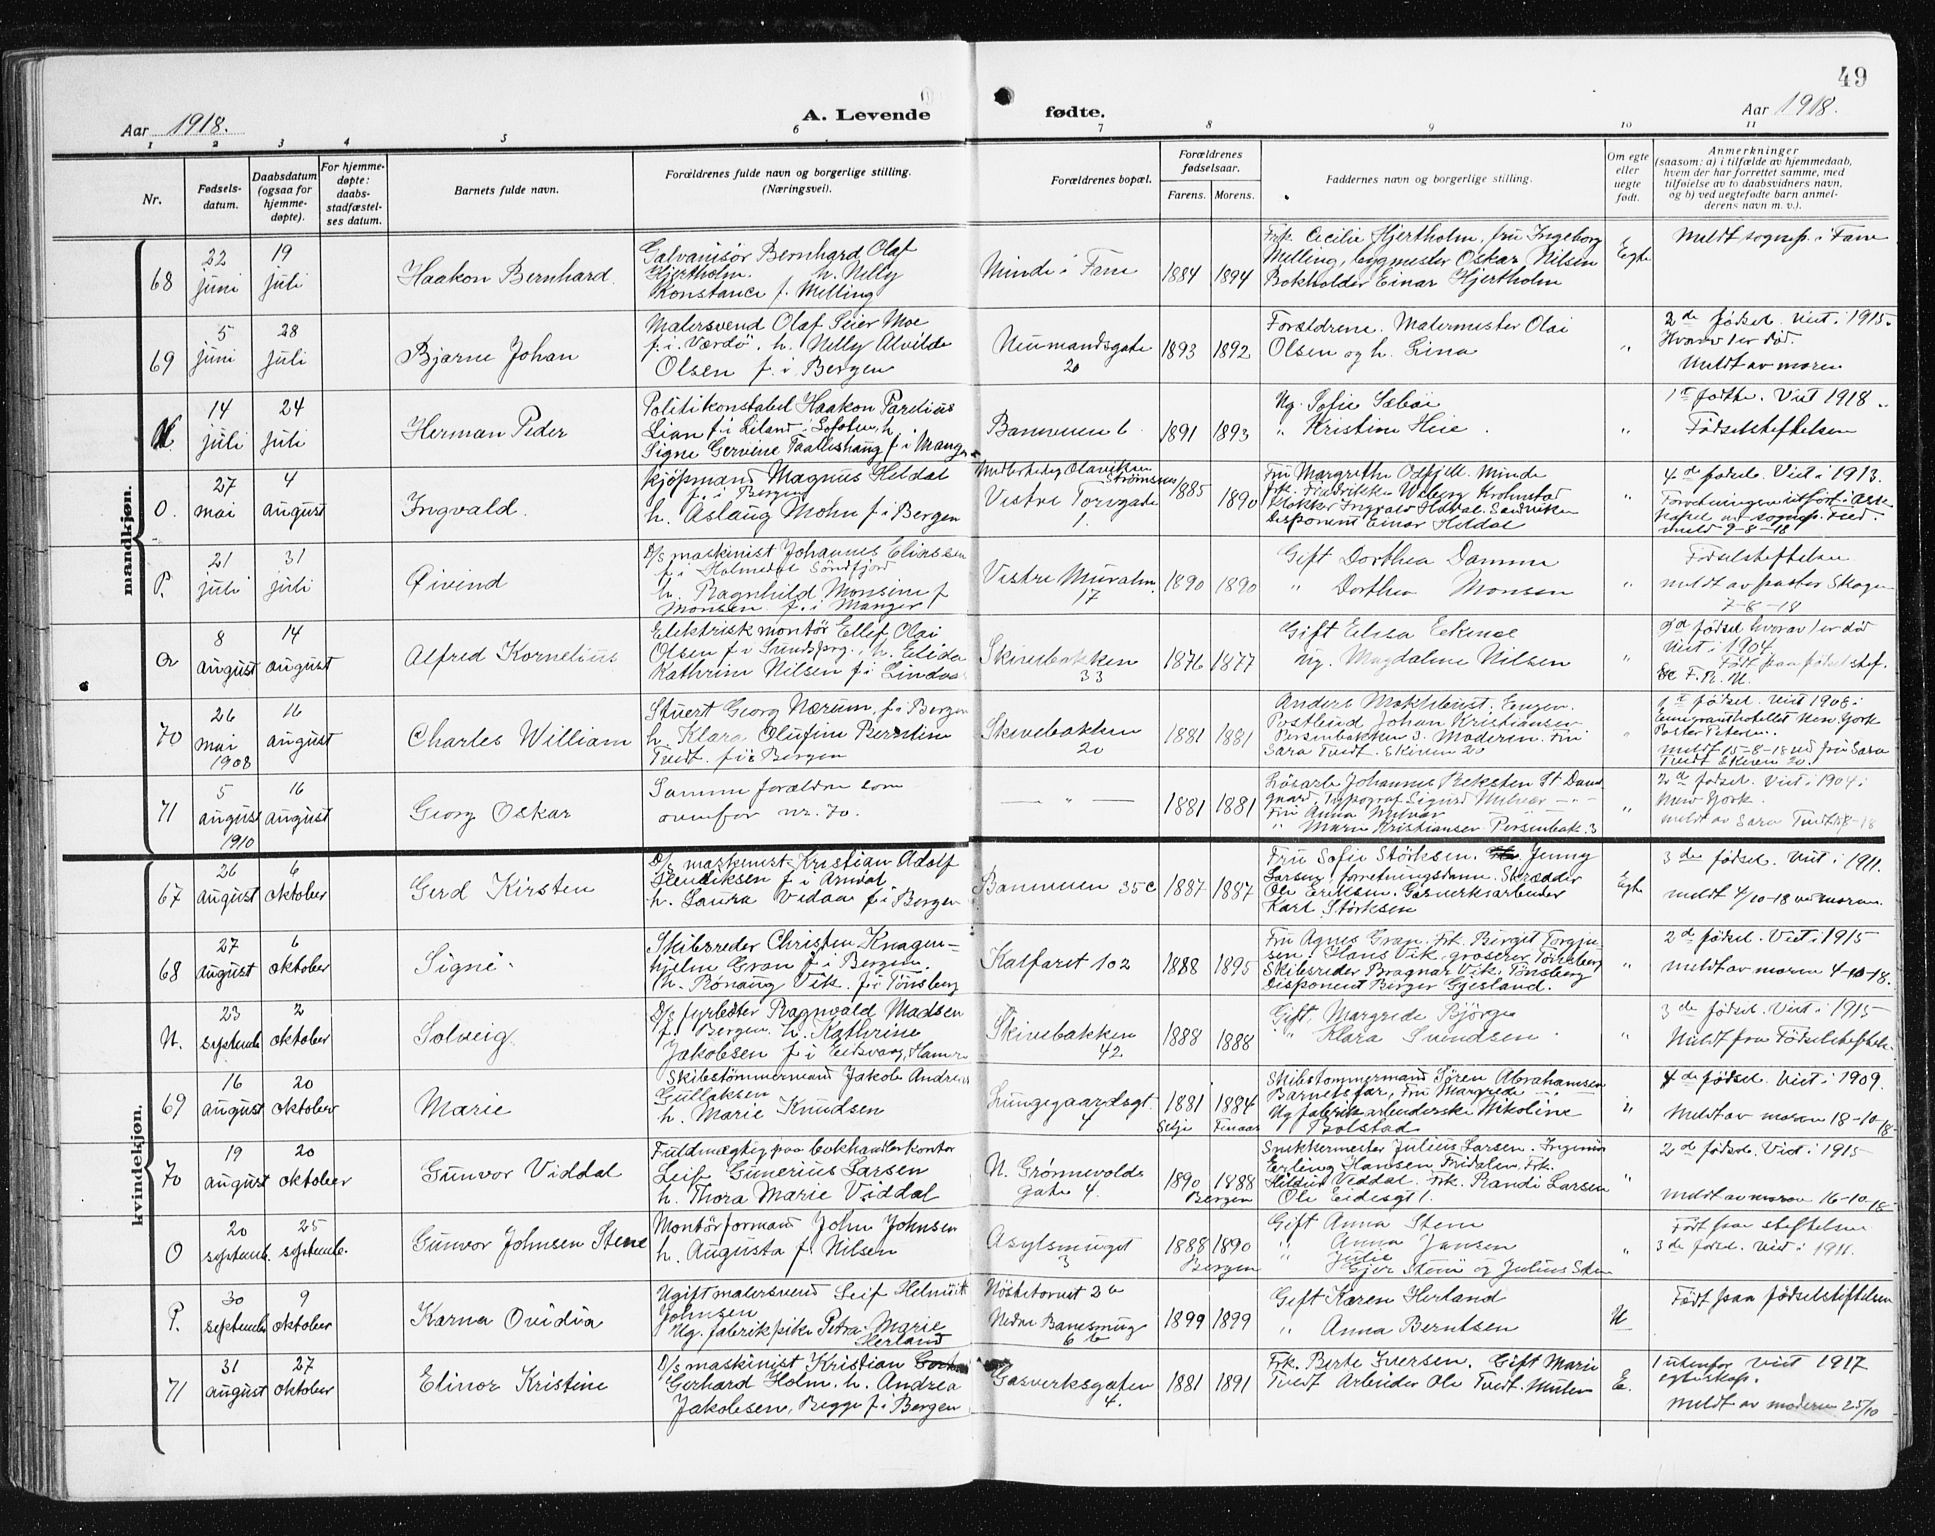 49
Aar 1918.
A. Levende fødte.
Aar 1918.
1 2 3 4 5 6 7 8 9 10 11
Nr.
Fødsels-
datum.
Daabsdatum
(ogsaa for
hjemme-
døpte).
For hjemme-
døpte:
daabs-
stadfæstel-
ses datum.
Barnets fulde navn.
Forældrenes fulde navn og borgerlige stilling.
(Næringsvei).
Forældrenes bopæl.
Forældrenes
fødselsaar.
Farens. Morens.
Faddernes navn og borgerlige stilling.
Om egte
eller
uegte
født.
Anmerkninger
(saasom: a) i tilfælde av hjemmedaab,
hvem der har forrettet samme, med
tilføielse av to daabsvidners navn,
og b) ved uegtefødte barn anmel-
derens navn m. v.).
mandkjøn.
68
22
juni
19
juli
Haakon Bernhard.
Galvanisør Bernhard Olaf
Hjertholm. h. Nelly
Konstance f. Melling
Minde i Fane
1884 1894
Frk. Cecilie Hjertholm, fru Ingeborg
Melling, bygmester Oskar Nilsen
Bokholder Einar Hjertholm
Egte
Meldt sognep. i Fane
69
5
juni
28
juli
Bjarne Johan
Malersvend Olaf Seier Moe
f. i Værdø. h. Nelly Alvilde
Olsen f. i Bergen
Neumandsgate
20
1893 1892
Forældrene. Malermester Olai
Olsen og h. Lina
"
2de fødsel. Viet i 1915.
Hvorav 1 er død.
Meldt av moren
N.
14
juli
24
juli
Herman Peder
Politikonstabel Haakon Parelius
Lian f. i Leland i Lofoten, h.
Signe Gervine Taalleshaug f. i Manger
Baneveien 6
1891 1893
Ug. Sofie Sæbøe
" Kristine Heie.
"
1st fødte. Viet 1918.
Fødselstiftelsen
O.
27
mai
4
august
Ingvald.
Kjøpmand Magnus Heldal
f. i Bergen
h. Aslaug Mohn f. i Bergen
Strømsnes
Vestre Torvgate
1.
1885 1890
Fru Margrethe Odfjell. Minde
Frk. Fredrikke Wiberg Krohnstad
Klokker Ingvald Heldal. Sandviken
Disponent Einar Heldal
"
4de fødsel. Viet i 1913.
Forretningen utført i Ask
kapel ved sognep. Fred.
meld 9-8-18
P.
21
juli
31
juli
Øivind
D/s maskinist Johannes Eliassen
f. i Holmedal Søndfjord
h. Ragnhild Monsine f.
Monsen f. i Manger
Vestre Muralm.
17
1890 1890
Gift Dorthea Damme
" Dorthea Monsen
"
Fødselstiftelsen
meldt av pastor Skagen
7-8-18
Q
8
august
14
august
Alfred Kornelius
Elektrisk montør Ellef Olai
Olsen f. i Sundsfjorg. h. Elida
Kathrine Nilsen f. i Lindaas
Skivebakken
33
1876 1877
Gift Elisa Eckhoe
Ug. Magdalene Nilsen
"
9de fødsel hvorav 1 er død
Viet i 1904.
Født paa fødselstif.
Se F. R. N.
70
26
mai
1908
16
august
Charles William
Stuert Georg Nærum, f. i Bergen
h. Klara Olufine Berntine
Tvedt. f. i Bergen
Skivebakken
20
1881 1881
Anders Mokkelbust. Engen.
Postbud Johan Kristiansen
Persenbakken 3. Moderen. Fru
Sara Tvedt. Skiven 20
"
1st fødsel. Viet 1906 i
Emigranthotellet New York
Pastor Petersen.
meldt 15-8-18 ved fru Sara
Tvedt Skiven 20.
71
5
august
1910
16
august
Georg Oskar
Samme forældre som
ovenfor nr. 70.
— " —
1881 1881
Løsarb. Johannes Reksten St. Dams
gaard, Typograf Sigurd Melvær — " —
Fru Anna Melvær
" Marie Kristiansen Persenbak. 3
"
2de fødsel. Viet i 1904 i
New York.
meldt av Sara Tvedt 15/8-18
kvindekjøn.
67
26
august
6
oktober
Gerd Kirsten
D/s maskinist Kristian Adolf
Hendriksen f. i Arendal
h. Laura Vidaa f. i Bergen
Baneveien 35c
1887 1887
Fru Sofie Størksen. Jenny
Larsen, forretningsdame. Skrædder
Ole Eriksen. Gasverksarbeider
Karl Størksen
Egte
3de fødsel. Viet i 1911.
meldt 4/10-18 ved moren.
68
27
august
6
oktober
Signe.
Skibsreder Christen Knagen-
hjelm Gran f. i Bergen.
h. Rønaug Vik. f. i Tønsberg
Kalfaret 102
1888 1895
Fru Agnes Gran. Frk. Berget Torgju-
sen. Hans Vik, groserer Tønsberg
Skibsreder Bragnar Vik. Tønsberg
Disponent Birger Gjesland.
"
2de fødsel. Viet i 1915
meldt av moren 4-10-18.
N.
23
septemb.
2
oktober
Solveig
D/s fyrbøter Ragnvald Madsen
f. i Bergen. h. Kathrine
Jakobsen f. i Eidsvaag, Hamre
Skivebakken
42
1888 1888
Gift. Margrede Bjørge
" Klara Svendsen
"
3de fødsel. Viet i 1915
Meldt fra Fødselstiftels.
69
16
august
20
oktober
Marie
Skibstømmermand Jakob Andreas
Gullaksen
h. Marie Knudsen
Lungegaardsgt.
4
1881 1884
Selje Finaas
Skibstømmermand Søren Abrahamsen
Barnets far, Fru Margrede — " —
Ug fabrikarbeiderske Nikoline
Bolstad
"
4de fødsel. Viet i 1909.
Meldt av moren 18-10-18
70
19
august
20
oktober
Gunvor Viddal
Fuldmægtig paa bokhandlerkontor
Leif Gunerius Larsen
h. Thora Marie Viddal
N. Grønnevolds
gate 4.
1890 1888
Bergen
Snekkermester Julius Larsen. Ingeniør
Erling Hansen Fridalen, Frk.
Hildur Viddal. Frk. Randi Larsen
Ole Eidesgt 1.
"
2de fødsel. Viet i 1915
meldt av moren 16-10-18
O
20
septemb.
25
septemb.
Gunvor Johnsen Stene
Montørformand John Johnsen
h. Augusta f. Nilsen
Asylsmuget
3
1888 1890
Bergen
Gift Anna Stene
" Anna Jansen
" Julie
Gjer Stene og Julius Stene
"
Født paa stiftelsen
3de fødsel. Viet i 1911.
P.
30
septemb.
9
oktober
Karna Ovidia
Ugift malersvend Leif Helmuth
Johnsen
Ug. fabrikpike Petra Marie
Herland
Nøstetorvet 3b
Nedre Banesmug
6b
1899 1899
Gift Karen Herland
" Anna Berntsen
U
Født paa fødselstiftelsen
71
31
august
27
oktober
Elinor Kristine
D/s maskinist Kristian
Gerhard Holm. h. Andrea
Jakobsen, Begge f. i Bergen
Gasverksgaten
4.
1881 1891
Frk. Berte Iversen. Gift Marie
Tvedt Arbeider Ole Tvedt. Mulen
E.
1 utenfor Viet 1917
egteskap.
Meldt av moderen 25/10